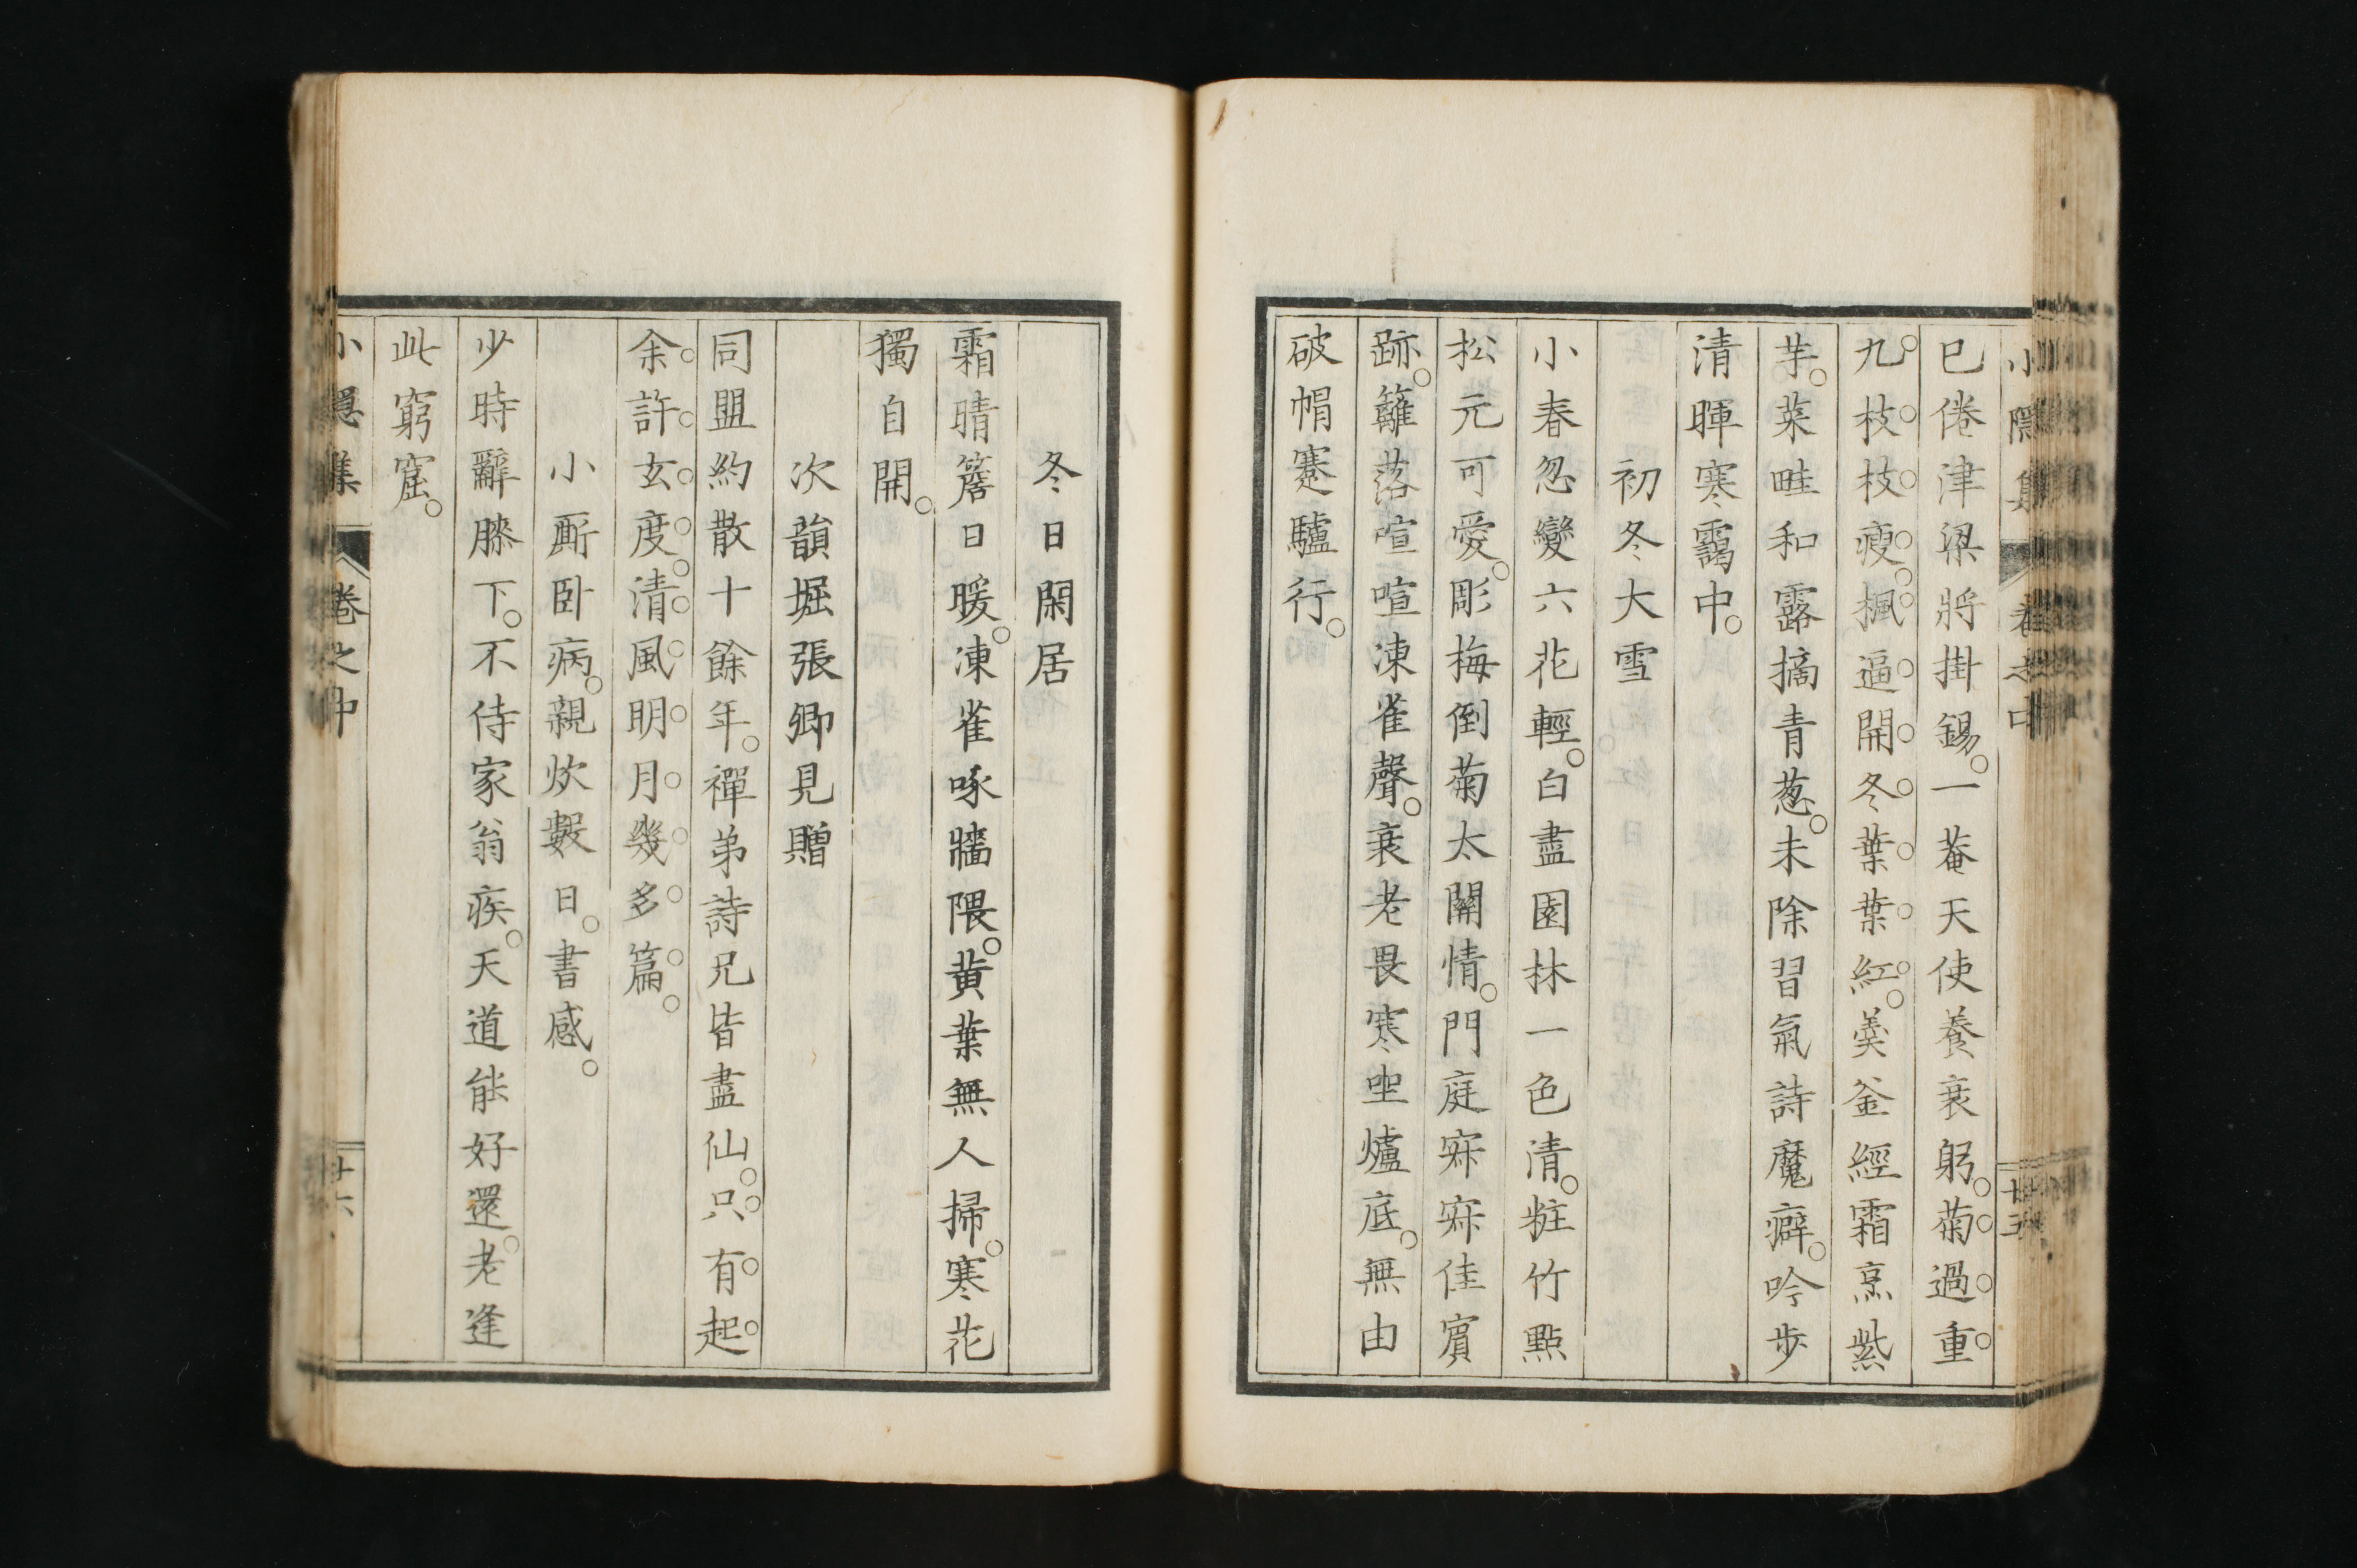 小隱集 卷之中
已倦津梁將掛錫。一菴天使養衰躬。菊過重
九枝枝瘦。楓逼開冬葉葉紅。羹釜經霜烹紫
芋。菜畦和露摘青葱。未除習氣詩魔癖。吟步
清暉寒靄中。
初冬大雪
小春忽變六花輕。白盡園林一色清。粧竹點
松元可愛。彫梅倒菊太關情。門庭寂寂佳賓
跡。籬落喧喧凍雀聲。衰老畏寒坐爐底。無由
破帽蹇驢行。
冬日閑居
霜晴簷日暖。凍雀啄牆隈。黄葉無人掃。寒花
獨自開。
次韻堀張卿見贈
同盟約散十餘年。禪弟詩兄皆盡仙。只有起
余許玄度。清風明月幾多篇。
小斲臥病。親炊數日。書感。
少時辭膝下。不侍家翁疾。天道能好還。老逢
此窮窟。
小隱集 卷之中 廿六